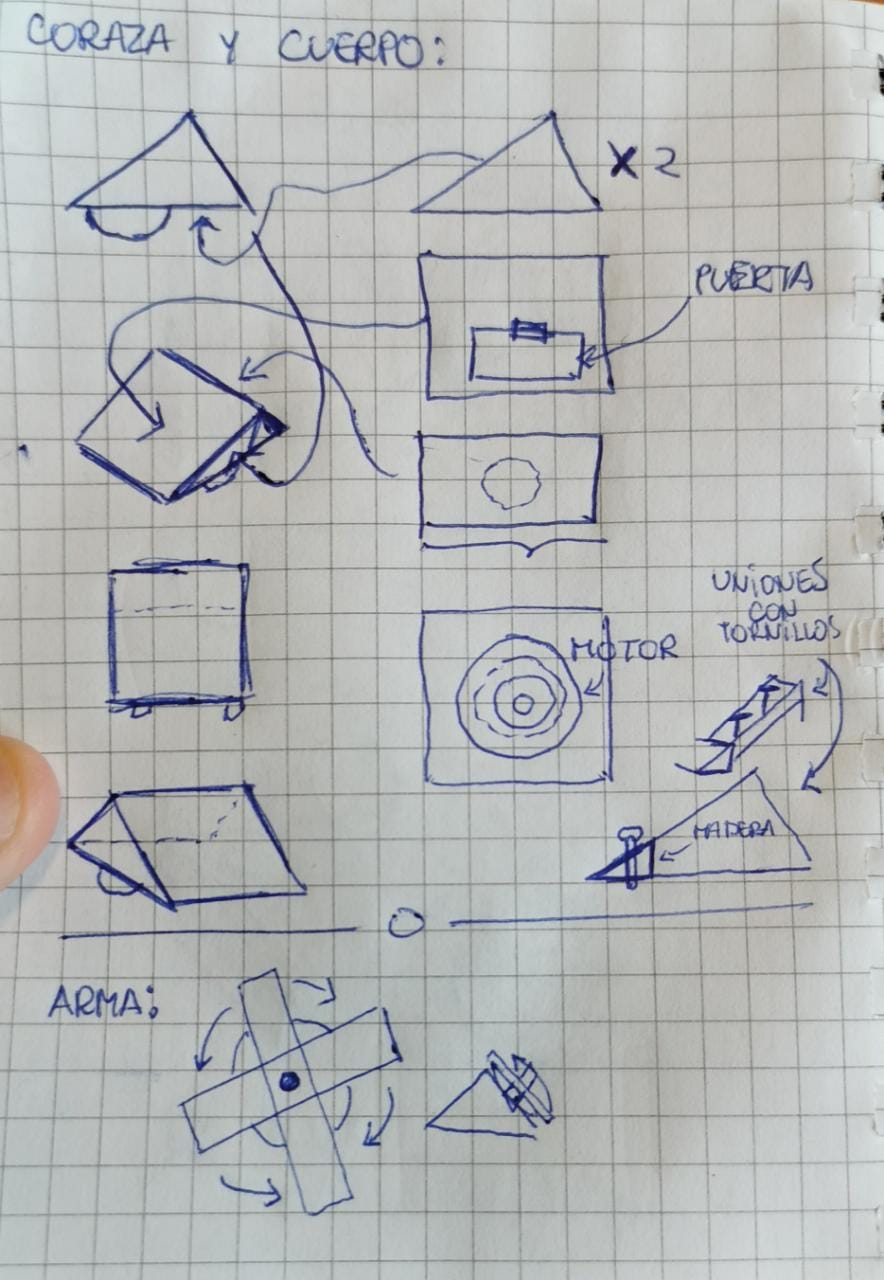 CORAZA Y CUERPO:
X 2
PUERTA
UNIONES
CON
TORNILLOS
MOTOR
MADERA
ARMA: